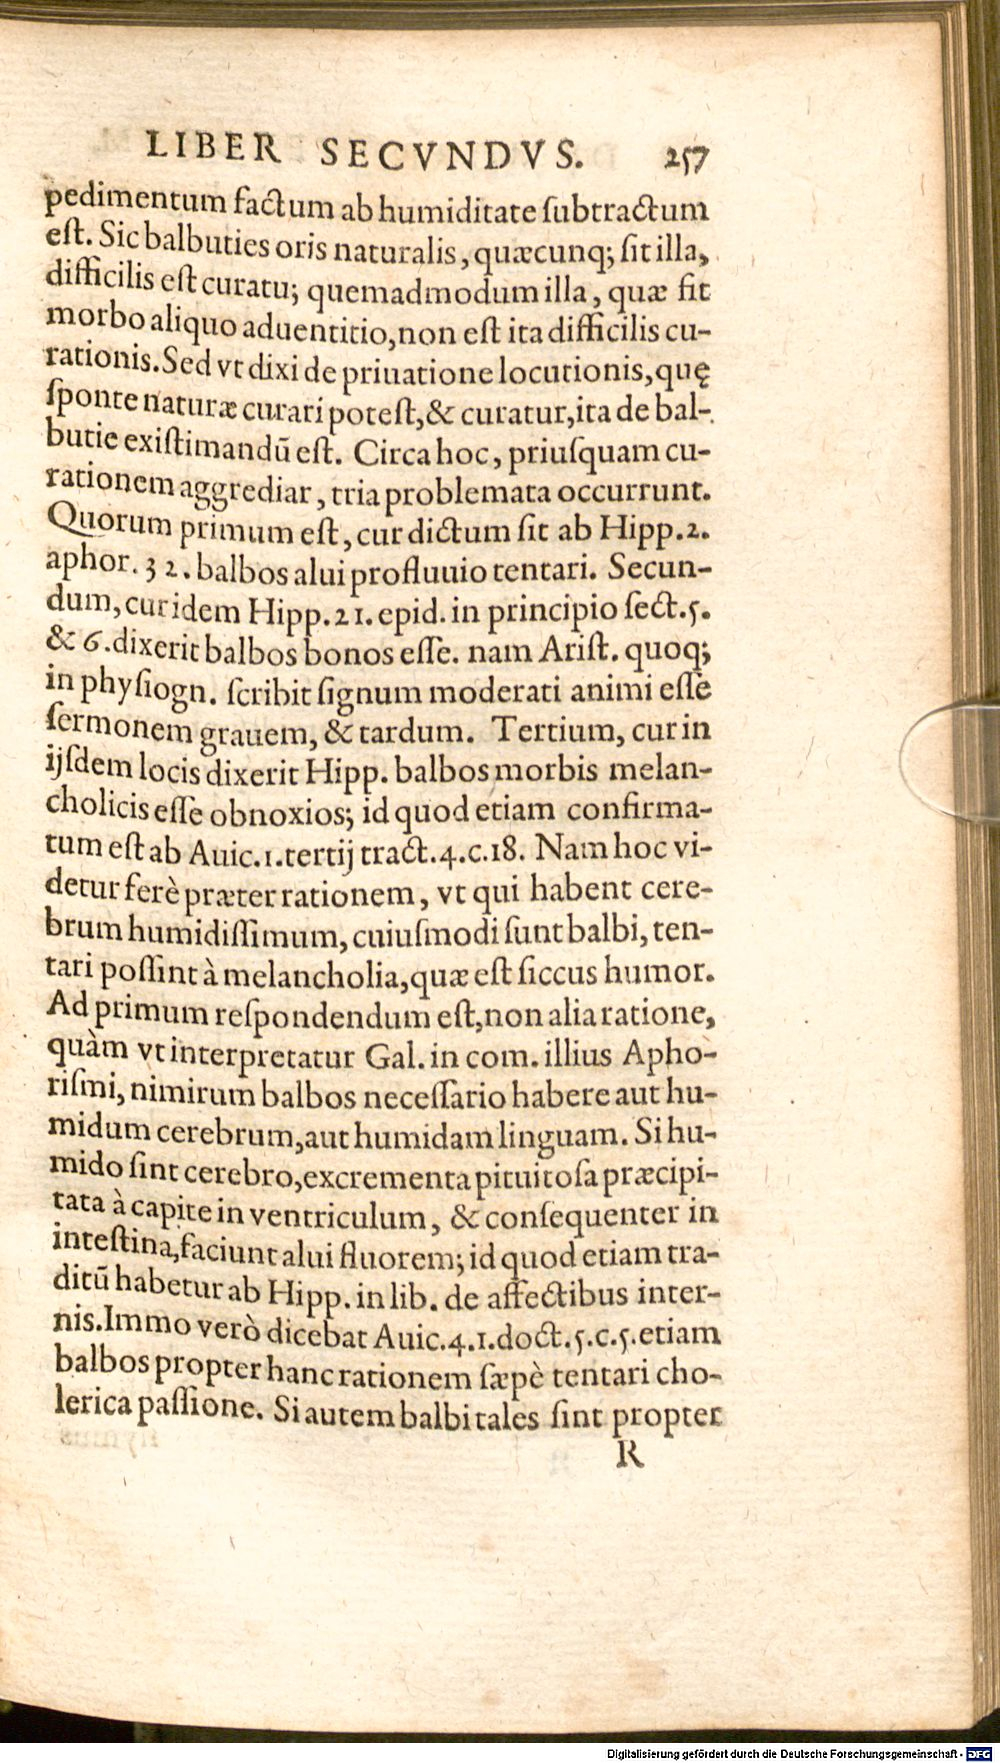 LIBER SECVNDVS. 257
pedimentum factum ab humiditate ſubtractum
eſt. Sic balbuties oris naturalis, quæcunq; ſit illa,
difficilis eſt curatu; quemadmodum illa, quæ fit
morbo aliquo aduentitio, non eſt ita difficilis cu-
rationis. Sed vt dixi de priuatione locutionis, quę
ſponte naturæ curari poteſt, & curatur, ita de bal-
butie exiſtimandū eſt. Circa hoc, priuſquam cu-
rationem aggrediar, tria problemata occurrunt.
Quorum primum eſt, cur dictum ſit ab Hipp. 2.
aphor. 32. balbos alui profluuio tentari. Secun-
dum, cur idem Hipp. 21. epid. in principio ſect. 5.
& 6. dixerit balbos bonos eſſe. nam Ariſt. quoq;
in phyſiogn. ſcribit ſignum moderati animi eſſe
ſermonem grauem, & tardum. Tertium, cur in
ijſdem locis dixerit Hipp. balbos morbis melan-
cholicis eſſe obnoxios; id quod etiam confirma-
tum eſt ab Auic. 1. tertij tract. 4. c. 18. Nam hoc vi-
detur ferè præter rationem, vt qui habent cere-
brum humidiſſimum, cuiuſmodi ſunt balbi, ten-
tari poſſint à melancholia, quæ eſt ſiccus humor.
Ad primum reſpondendum eſt, non alia ratione,
quàm vt interpretatur Gal. in com. illius Apho-
riſmi, nimirum balbos neceſſario habere aut hu-
midum cerebrum, aut humidam linguam. Si hu-
mido ſint cerebro, excrementa pituitoſa præcipi-
tata à capite in ventriculum, & conſequenter in
inteſtina, faciunt alui fluorem; id quod etiam tra-
ditū habetur ab Hipp. in lib. de affectibus inter-
nis. Immo verò dicebat Auic. 4. 1. doct. 5. c. 5. etiam
balbos propter hanc rationem ſæpè tentari cho-
lerica paſſione. Si autem balbi tales ſint propter
R
Digitalisierung gefördert durch die Deutsche Forschungsgemeinschaft - DFG